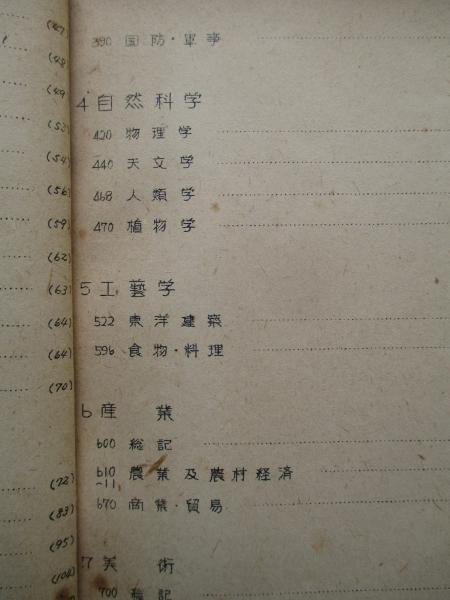 (47)
(48)
(49)
(53)
(54)
(56)
(59)
(62)
(63)
(64)
(64)
(70)
(72)
(83)
(95)
(104)
390 国防・軍事
4 自然科学
420 物理学
440 天文学
468 人類学
470 植物学
5 工藝学
522 東洋建築
596 食物・料理
6 産業
600 総記
610~11 農業及農村経済
670 商業・貿易
7 美術
700 総記